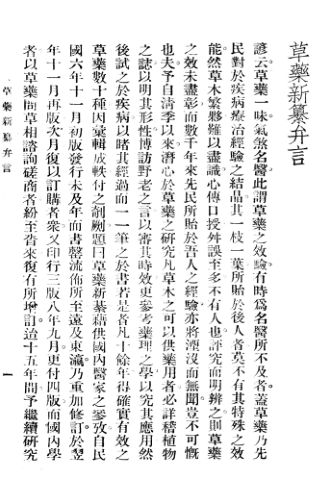 草藥新纂弁言
諺云草藥一味氣煞名醫此謂草藥之效驗有時爲名醫所不及者蓋草藥乃先
民對於疾病療治經驗之結晶其一枝一葉所貽於後人者莫不有其特殊之效
能然草木繁夥難以盡識心傳口授舛誤至多不有人也評究而明辨之則草藥
之效未盡彰而數千年來先民所貽於吾人之經驗亦將湮沒而無聞豈不可慨
也夫予自清季以來潛心於草藥之研究凡草木之可以供藥用者必詳稽植物
之誌以明其形性博訪野老之言以審其時效更參考藥理之學以究其應用然
後試之於疾病以睹其經過而一一筆之於書若是者凡十餘年得確實有效之
草藥數十種因彙輯成帙付之剞劂題曰草藥新纂藉供國內醫家之參攷自民
國六年十一月初版發行未及年而書罄流佈所至遠及東瀛乃重加修訂於翌
年十一月再版次月復以訂購者衆又印行三版八年九月更付四版而國內學
者以草藥問草相諮詢磋商者紛至沓來復有所增訂迨十五年間予繼續研究
草藥新纂弁言
一